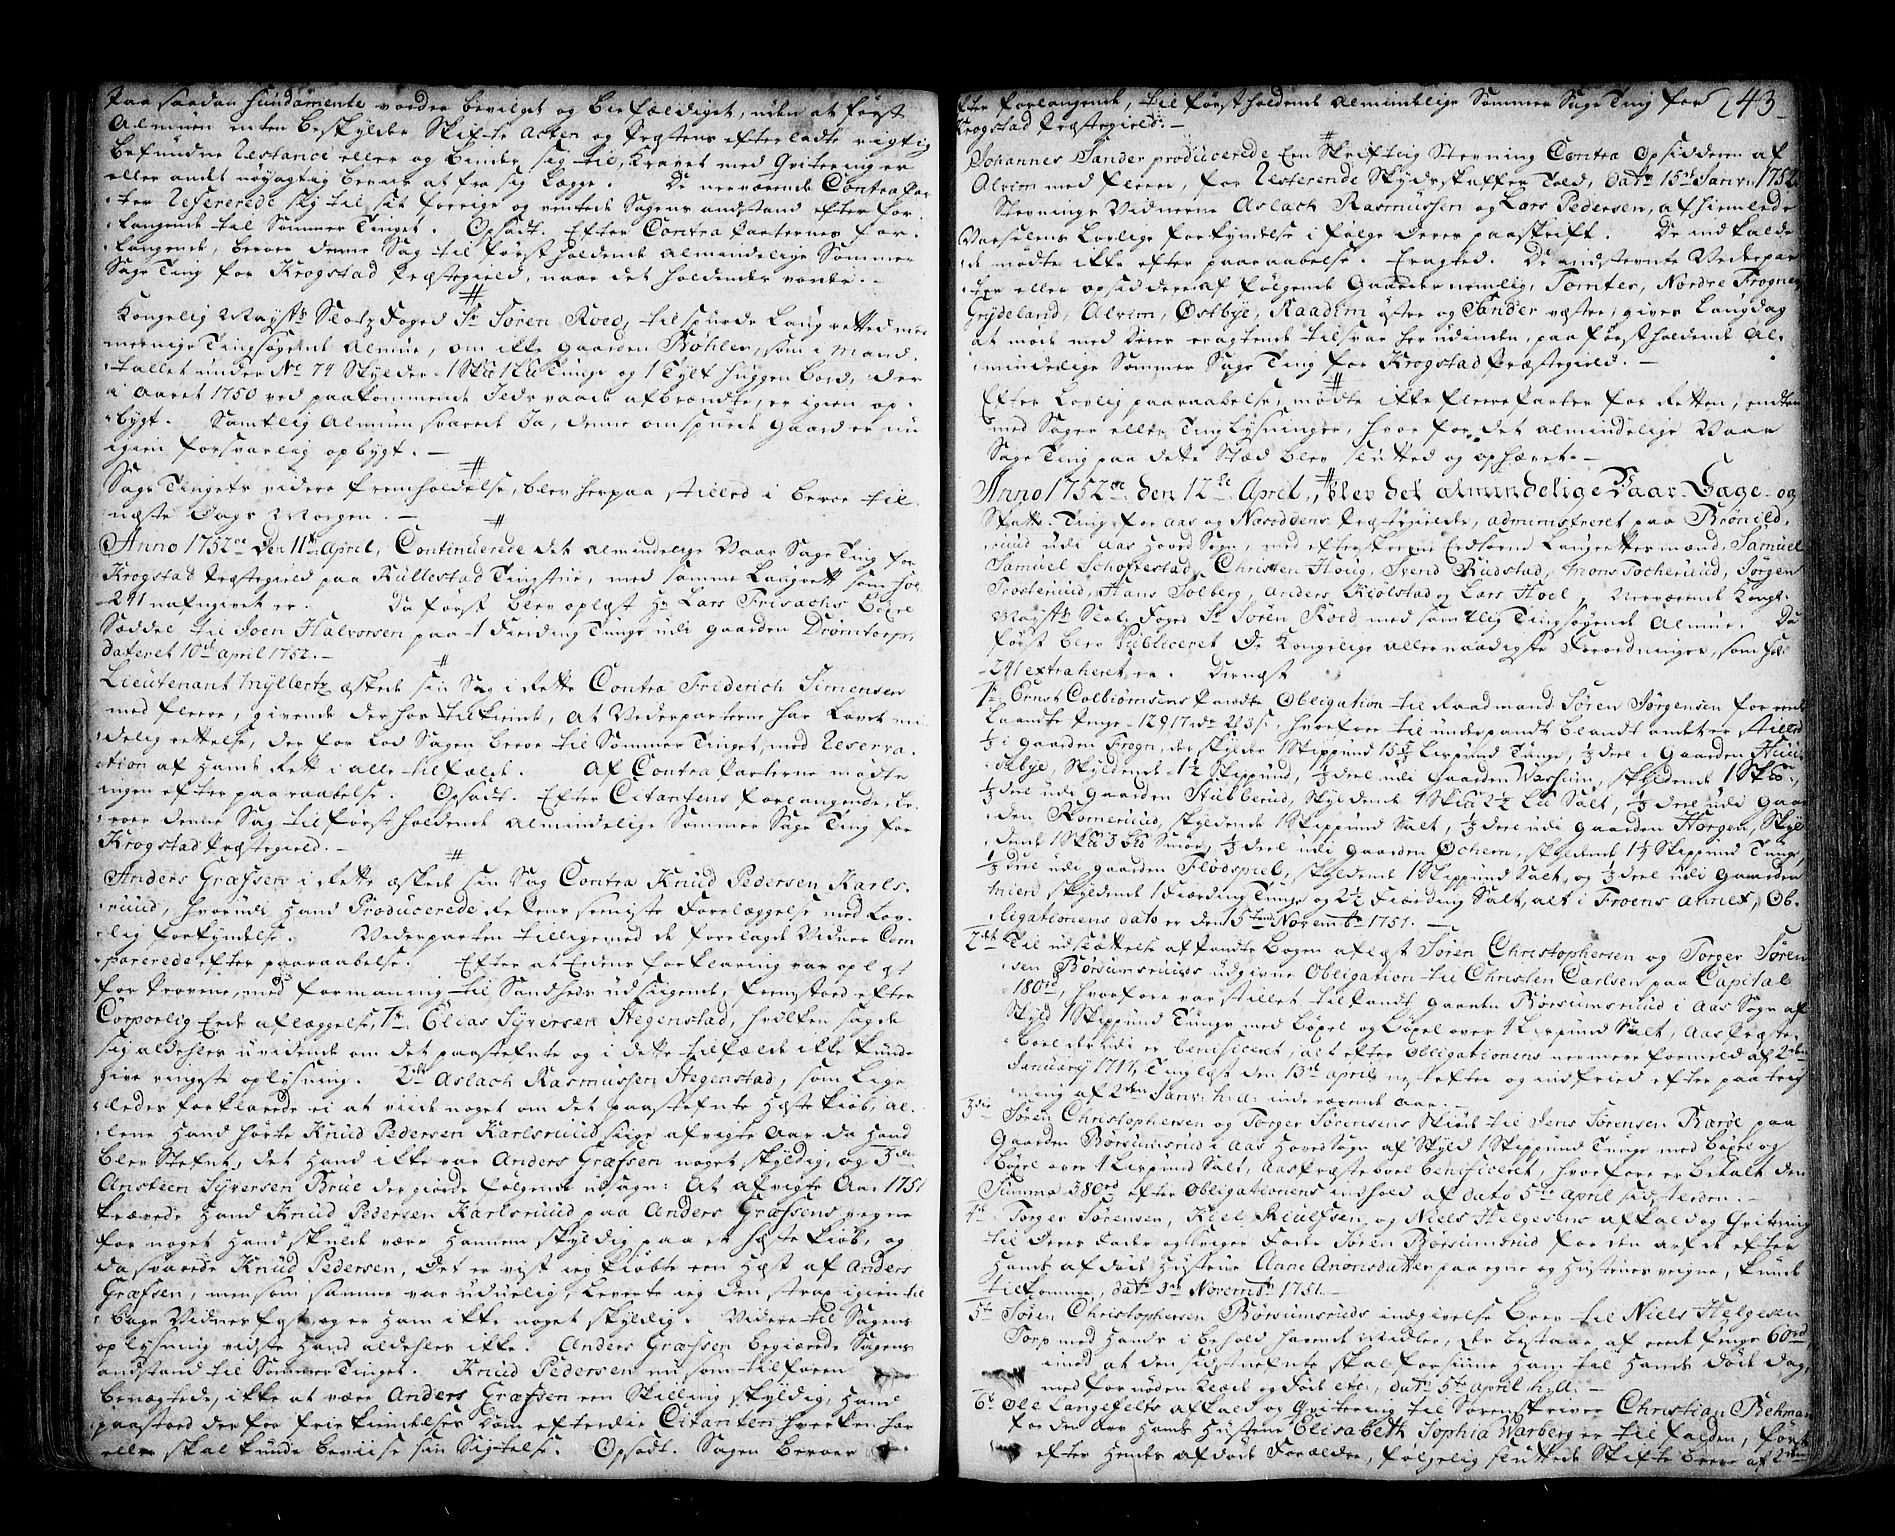 Paa saadan fundamente vorder bevilget og biefaldiget, uden at først
Almuen enten beskylder Skifte Acten og Præstens efterladte rigtig
befundne Restance eller og binder sig til, kravet med Qvitteringer
eller andet nøyagtig beviis at fra sig legge. De nerværende Contra Par-
ter Refererede sig til sit forrige og ventede Sagens anstand efter for-
langende til Sommer Tinget. Opsadt. Efter Contra Parternes for-
langende, beroer denne Sag til først holdende almindelige Sommer
Sage Ting for Krogstad Præstegield, naar det holdendes vorder.
Kongelig Maysts Slotz Foged Sr Søren Roed, tilspurde Laug retted med
meenige Tingsøgende Almue, om ikke gaarden Bøhler, som i Mand-
tallet under No 74 Skylder 1 Sku 1 Lu Tunge og 1 Tylt huggen bord, der
i Aaret 1750 ved paakommende Ilds vaade afbrændte, er igien op-
bygt. Samtlig Almuen svarede Ja, denne omspurte Gaard er nu
igien forsvarlig opbygt.
Sage Tingets videre fremholdelse, blev herpaa stilled i beroe til
næste Dags Morgen.
Anno 1752 den 11te April, Continuerede det almindelige Vaar Sage Ting for
Krogstad Præstegield paa Kullestad Tingstue, med samme Laugrett som fol.
241 nafngivet er. Da først blev oplæst Hr Lars Frisachs Bøxel
Seddel til Joen Halvorsen paa 1 Fierding Tunge udi gaarden Drømtorp,
dateret 10de April 1752.
Lieutenant Myllertz æskede sin Sag i Rette Contra Friderich Simensen
med fleere, givende derhos tilkiende, at Vederparterne har lovet mi-
delig rettelse, der for lod Sagen beroe til Sommer Tinget, med Reserva-
tion af hands Rett i alle tilfælde. Af Contra Parterne mødte
ingen efter paaraabelse. Opsadt. Efter Citantens forlangende, be-
roer denne Sag til først holdende almindelige Sommer Sage Ting for
Krogstad Præstegield.
Anders Græfsen i Rette æskede sin Sag Contra Knud Pedersen Karls-
ruud, hvorudi hand Producerede Rettens seeniste Forelæggelse med Lov-
lig forkyndelse. Vederparten tilligemed de forelagde Vidner Com-
parerede efter paaraabelse. Efter at Eedens forklaring var oplæst
for Provene, med formaning til Sandheds udsigende, fremstoed efter
Corporlig Eeds aflæggelse, 1te Elias Syversen Hegenstad, hvilken sagde
sig aldeles uvidende om det paastefnte og i dette tilfælde ikke kunde
give ringeste oplysning. 2det Aslach Rasmussen Hegenstad, som lige-
ledes forklarede ei at viide noget om det paastefnte hæste kiøb, al-
lene hand hørte Knud Pedersen Karlsruud siige afvigte Aar da hand
blev Stefnt, det hand ikke var Anders Græfsen noget skyldig, og 3die
Ansteen Syversen Brue der giorde følgende udsagn: At afvigte Aar 1751
krævede hand Knud Pedersen Karlsruud paa Anders Græfsens vegne
for noget hand skulde være hannem skyldig paa et hæste kiøb, og
da svarede Knud Pedersen, det er vist ieg kiøbte een Hæst af Anders
Græfsen, men som samme var uduelig, leverte ieg den strax igien til-
bage Vidnesfast og er ham ikke noget skyldig. Videre til Sagens
oplysning vidste hand aldeles ikke. Anders Græfsen begierede Sagens
anstand til Sommer Tinget. Knud Pedersen nu som tilforn
benægtede, ikke at være Anders Græfsen een Skilling skyldig, hand
paastoed der for frie kiendelses dom efterdie Citanten hverken har
eller skal kunde beviise sin Sigtelse. Opsadt. Sagen beroer
efter forlangende, til førstholdende almindelige Sommer Sage Ting for 243
Krogstad Præstegield.
Johannes Sander producerede Een Skriftlig Stevning Contra Opsidderen af
Alrim med fleere, for Resterende Skydsskaffer Told, dato 15de Janv. 1752
Stevnings Vidnerne Aslach Rasmussen og Lars Pedersen, afhiemlede
Varselens lovlige forkyndelse i følge deres paaskrift. De indkalde-
de mødte ikke efter paaraabelse. Eragted. De andstevnte Vederpar-
ter eller opsiddere af følgende Gaarder nemlig, Tomter, Nordre Frogner
Grydeland, Alrim, Østbye, Raadum østre og Sander vestre, gives Laugdag
at møde med deres eragtende tilsvar her udinden, paa førstholdende Al-
mindelige Sommer Sage Ting for Krogstad Præstegield.
Efter lovlig paaraabelse, mødte ikke fleere Parter for Retten, enten
med Sager eller Tinglysninger, hvor for det almindelige Vaar
Sage Ting paa dette Stæd blev slutted og ophævet.
Anno 1752 den 12te April, blev det almindelige Vaar-Sage- og
Skatte-Ting for Aas og Nordbens Præstegielder, administreret paa Brønild-
ruud udi Aas hoved Sogn, med efterskrevne Eedsorne Laugrettesmænd, Samuel
Samuel Schoftestad, Christen Houg, Svend Rudstad, Mons Tocheruud, Jørgen
Frosteruud, Hans Solberg, Anders Kiolstad og Lars Hoel, Nerværende Kongl.
Maysts Slots Foged Sr Søren Roed med samtlig Tingsøgende Almue. Da
først blev Publiceret De Kongelige allernaadigste Forordninger, som fol.
241 extraheret er. Dernæst
1te Ernst Colbiørnsens Pandte Obligation til Raadmand Søren Jørgensen for rente
laante Penge 12917 rdr 2 ß, hvorfore til underpandt blandt andet er stilled
1/3 i gaarden Frogn, der skylder 1 Skippund 15 1/2 Lispund Tunge, 1/3 deel i Gaarden Huus-
debye, skyldende 1 1/2 Skippund, 1/3 deel udi Gaarden Wassum, skyldende 1 Skuo,
1/3 deel udi Gaarden Stubberud, skyldende 1 Skuo 2 1/2 Lu Salt, 1/3 deel udi Gaar-
den Romeruud, skyldende 1 Skippund Salt, 1/3 deel udi Gaarden Horgen, skyl-
dende 1 Skuo 3 bu Smør, 1/3 deel udi Gaarden Ochern, skyldende 1 1/2 Skippund Tunge,
1/3 deel udi Gaarden Flødspiel, skyldende 1 Skippund Salt, og 1/3 deel udi Gaarden
Mieru, skyldende 1 Fiærding Tunge og 2 1/2 Fiærding Salt, alt i Froens Annex, Ob-
ligationens dato er den 15ten Novembr 1751.
2det Til udslættelse af Pandte bogen aflæst Søren Christophersen og Torger Søren-
sen Børsumsruds udgivne Obligation til Christen Carlsen paa Capital
180 rd, hvorfore var stillet til Pandt Gaarden Børsumsruud i Aas Sogn af
skyld 1 Skippund Tunge med bøxel og bøxel over 1 Lispund Salt, Aas Præste-
boel deri er beneficeret, alt efter Obligationens nermere formeld af 2den
January 1744, Tinglæst den 13de April næstefter og indfried efter paateg-
ning af 2den Janv. h. a. inderverende Aar.
3die Søren Christophersen og Torger Sørensens Skiøde til Jens Sørensen Karøe paa
Gaarden Børsumsrud i Aas Hovedsogn af skyld 1 Skippund Tunge med bøxel og
bøxel over 1 Lispund Salt, Aas Præsteboel beneficeret, hvorfore er betalt den
Summa 380 rd efter Obligationens indhold af dato 5te April sidstleden.
4de Torger Sørensen, Kiel Kiulfsen, og Niels Helgesens afkald og Qvitering
til deres Fader og Sviger Fader Søren Børsumbrud for den arf de efter
hands afdøde Hustrue Anne Amonsdatter paa egne og Hustruers veigne, kunde
tilkomme, dato 3de Novembr 1751.
5te Søren Christophersen Børsumsruds indgivelse brev til Niels Helgesen
Torp med hands i behold havende Midler, der bestaar af reede penge 60 rd,
imod at den sidstnefnte skal forsiune ham til hands døde dag,
med fornøden Klæde og Føde etc., dato 5te April h. a.
6te Ole Langefelts afkald og Qvitering til Sorenskriver Christian Bekman
for den Arv hands Hustrue Elisabeth Sophia Warberg er tilfalden, først
efter hendes afdøde Forældre, følgelig sluttede Skifte breve af 2den